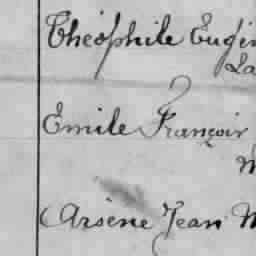 Théophile Eugèn
La
Emile François
M
Arsène Jean M